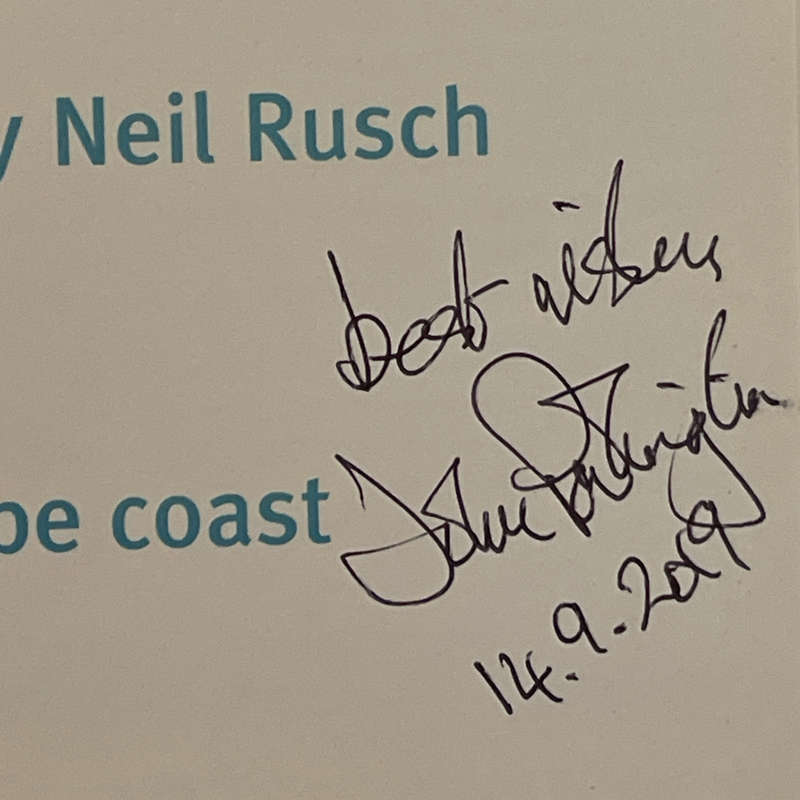 y Neil Rusch
best wishes
John Parkington
pe coast
14.9.2019